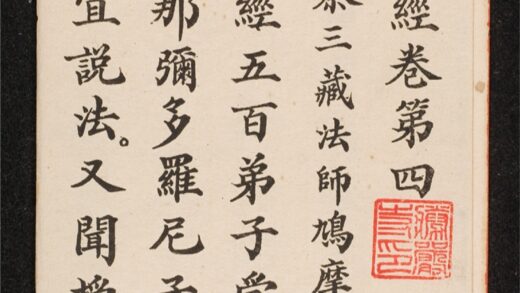 經卷第四
三藏法師鳩摩
經五百弟子受
那彌多羅尼子
宜説法。又聞授